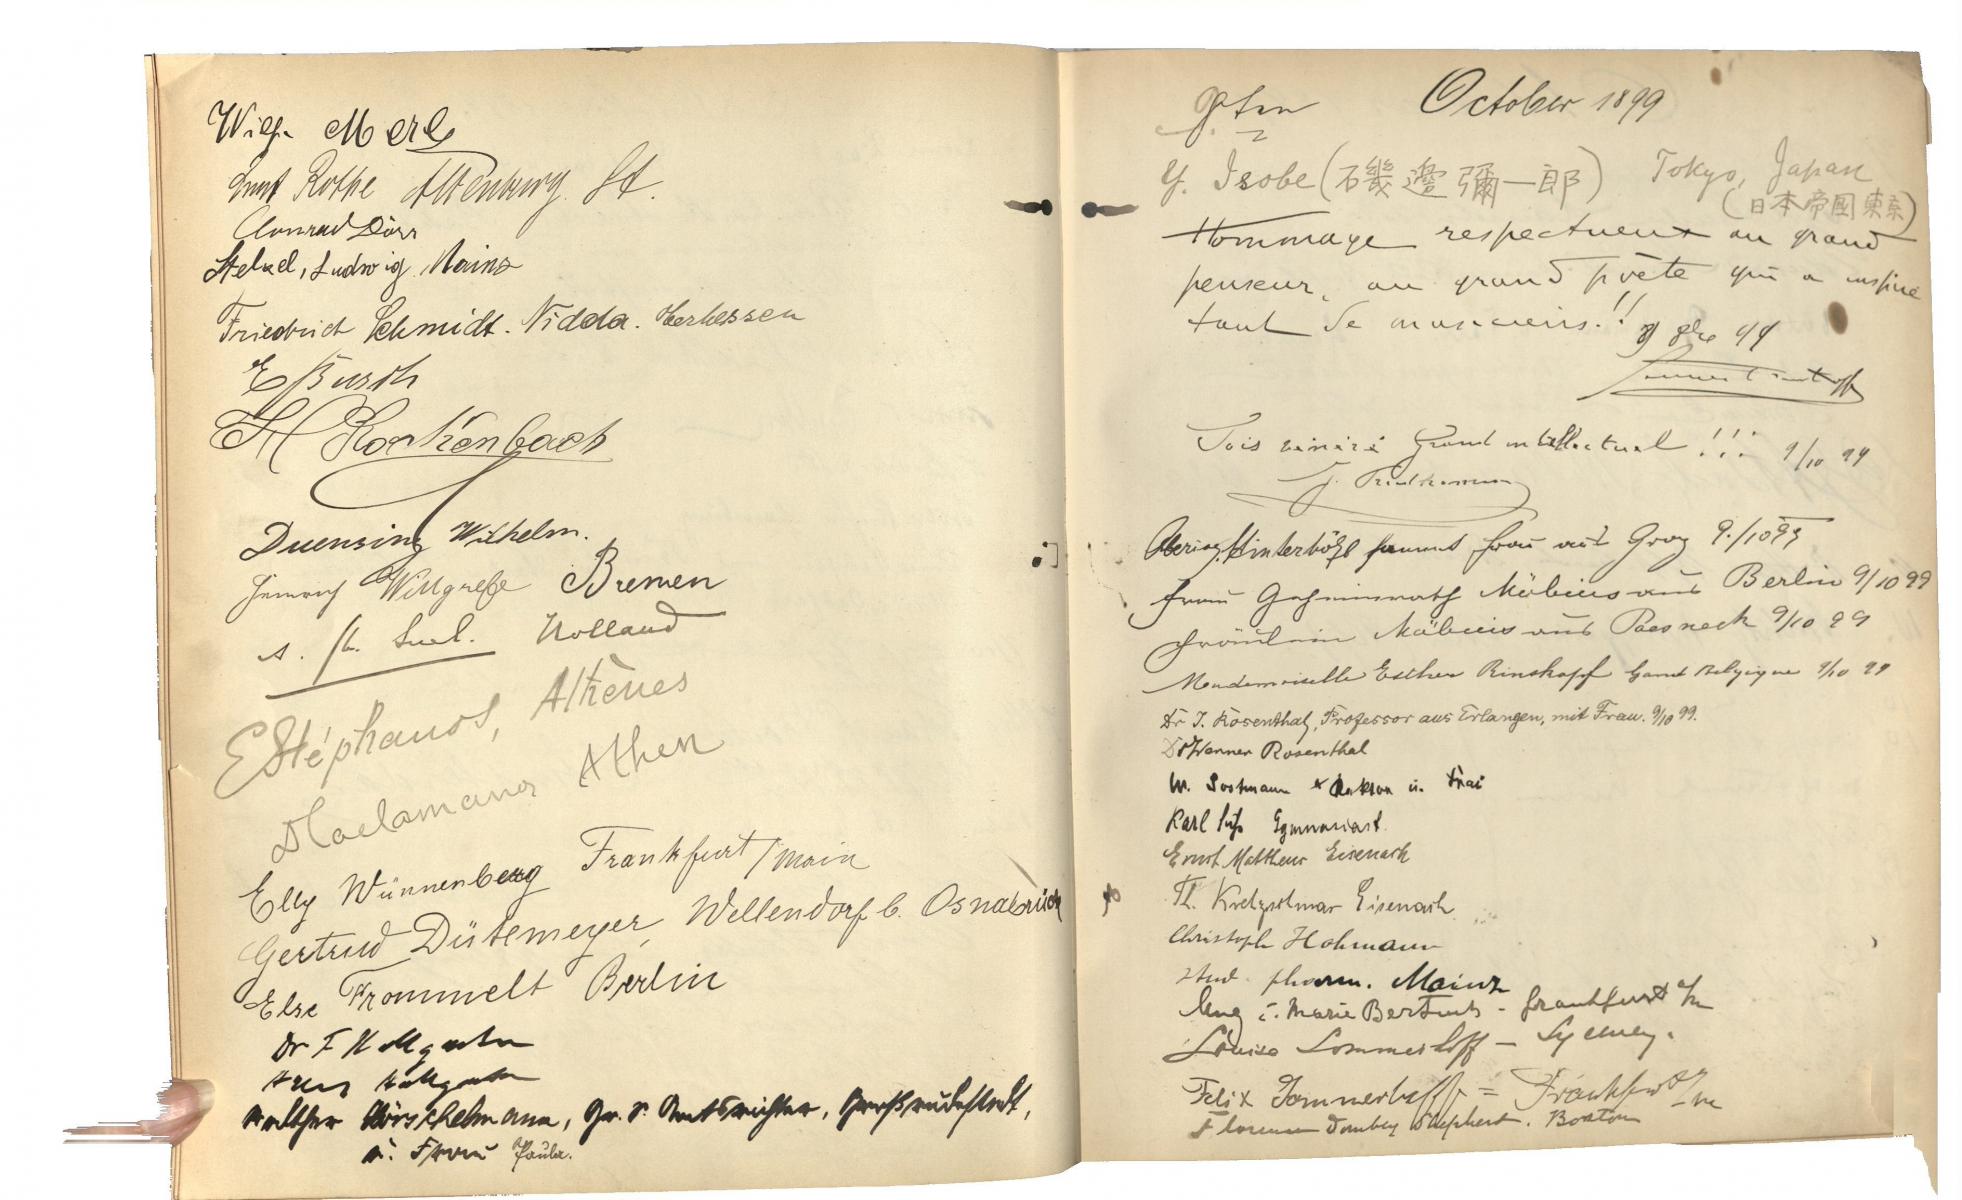 Wilh. Merle
Ernst Rothe Altenburg. St.
Conrad Dörr
Stelzel, Ludwig. Mainz
Friedrich Schmidt. Nidda.
E Busch
H Rockenbach
Duensing Wilhelm.
Heinrich Willgrefe Bremen
Holland
EStéphanos, Athènes
Athen
Elly Wünnenberg Frankfurt/Main
Gertrud Dütemeyer, Wellendorf b. Osnabrück
Else Frommelt Berlin
Dr F Hallgarten
Hallgarten
Walther Hörschelmann, Gr. S. Amtsrichter, Großrudestedt,
u. Frau Paula.
October 1899
Y. Isobe (石磯邊彌一郎) Tokyo, Japan
(日本帝國東京)
Hommage respectueux au grand
penseur, au grand poète qui a inspiré
tant de musiciens!!
99
Grand intellectuel!!! 9/10 99
Hinterhölzl sammt Frau aus Graz 9./10 99
Frau Geheimrath Möbius aus Berlin 9/10 99
Fräulein Möbius aus Poesneck 9/10 99
Mademoiselle Esther Rinskopf Gand Belgique 9/10 99
Dr I. Rosenthal, Professor aus Erlangen, mit Frau. 9/10 99.
Dr Werner Rosenthal
W. u. Frau
Karl Gymnasiast.
Ernst Mattheus Eisenach
Th. Kretzschmar Eisenach
Christoph Hohmann
stud. pharm. Mainz
u. Marie Frankfurt a/m
Louise Sommerhoff – Sydney.
Felix Sommerhoff = Frankfurt a/m
Florence Dombey Shepherd. Boston